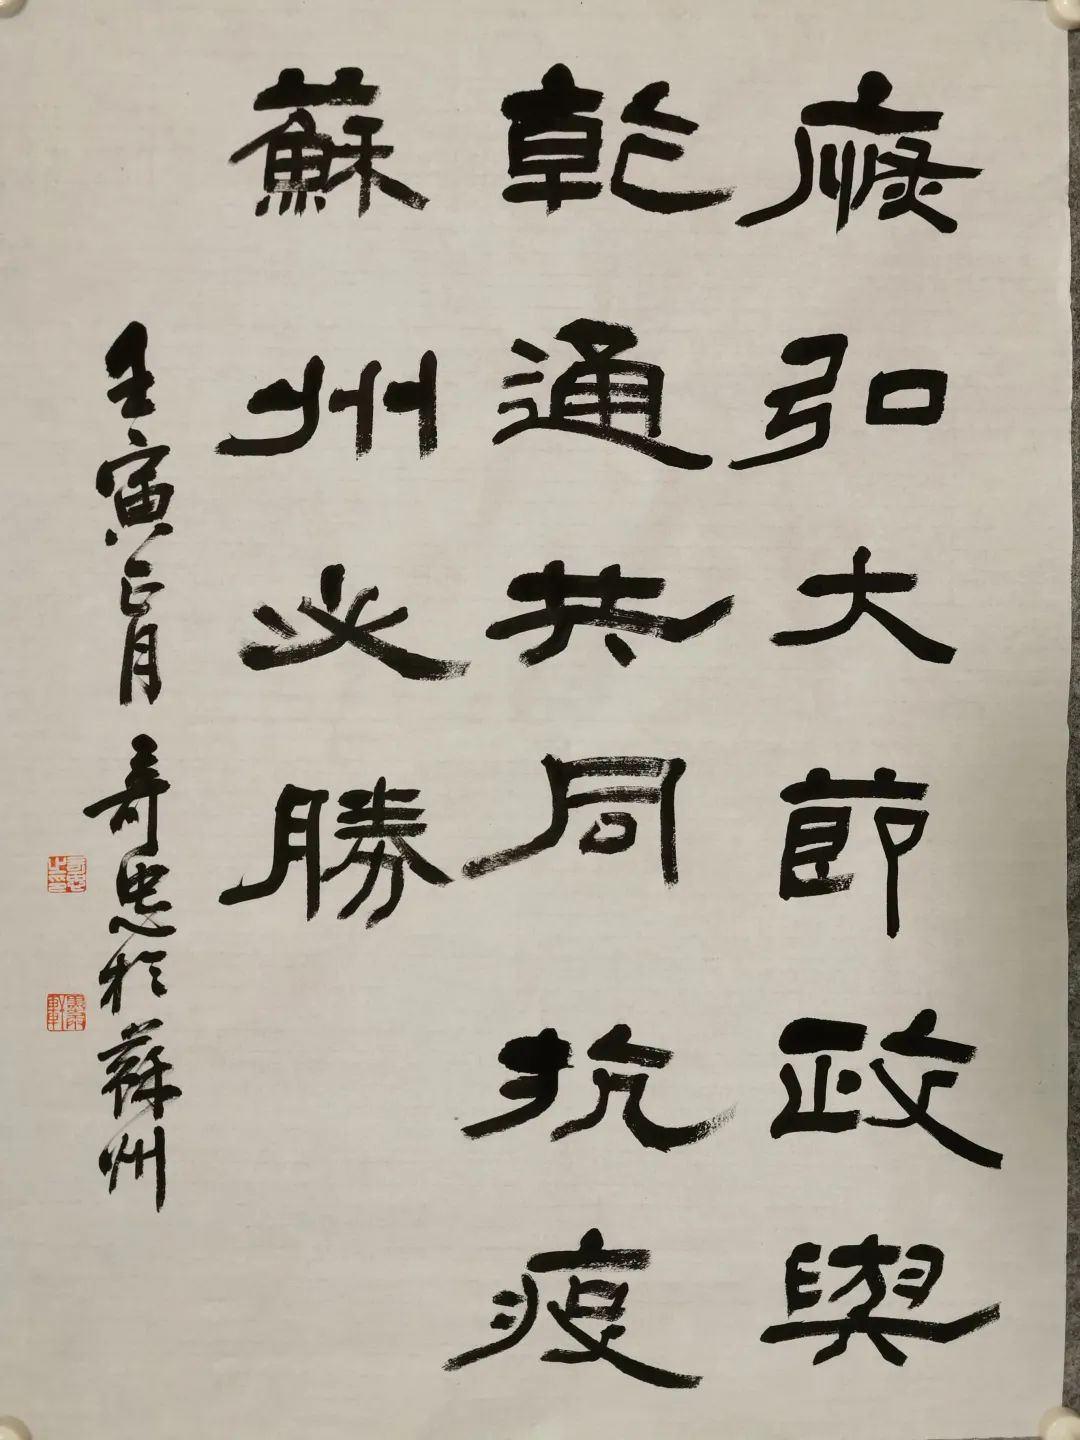 弘大節政與
乾通共同抗疫
蘇州必勝
壬寅正月奇忠於蘇州